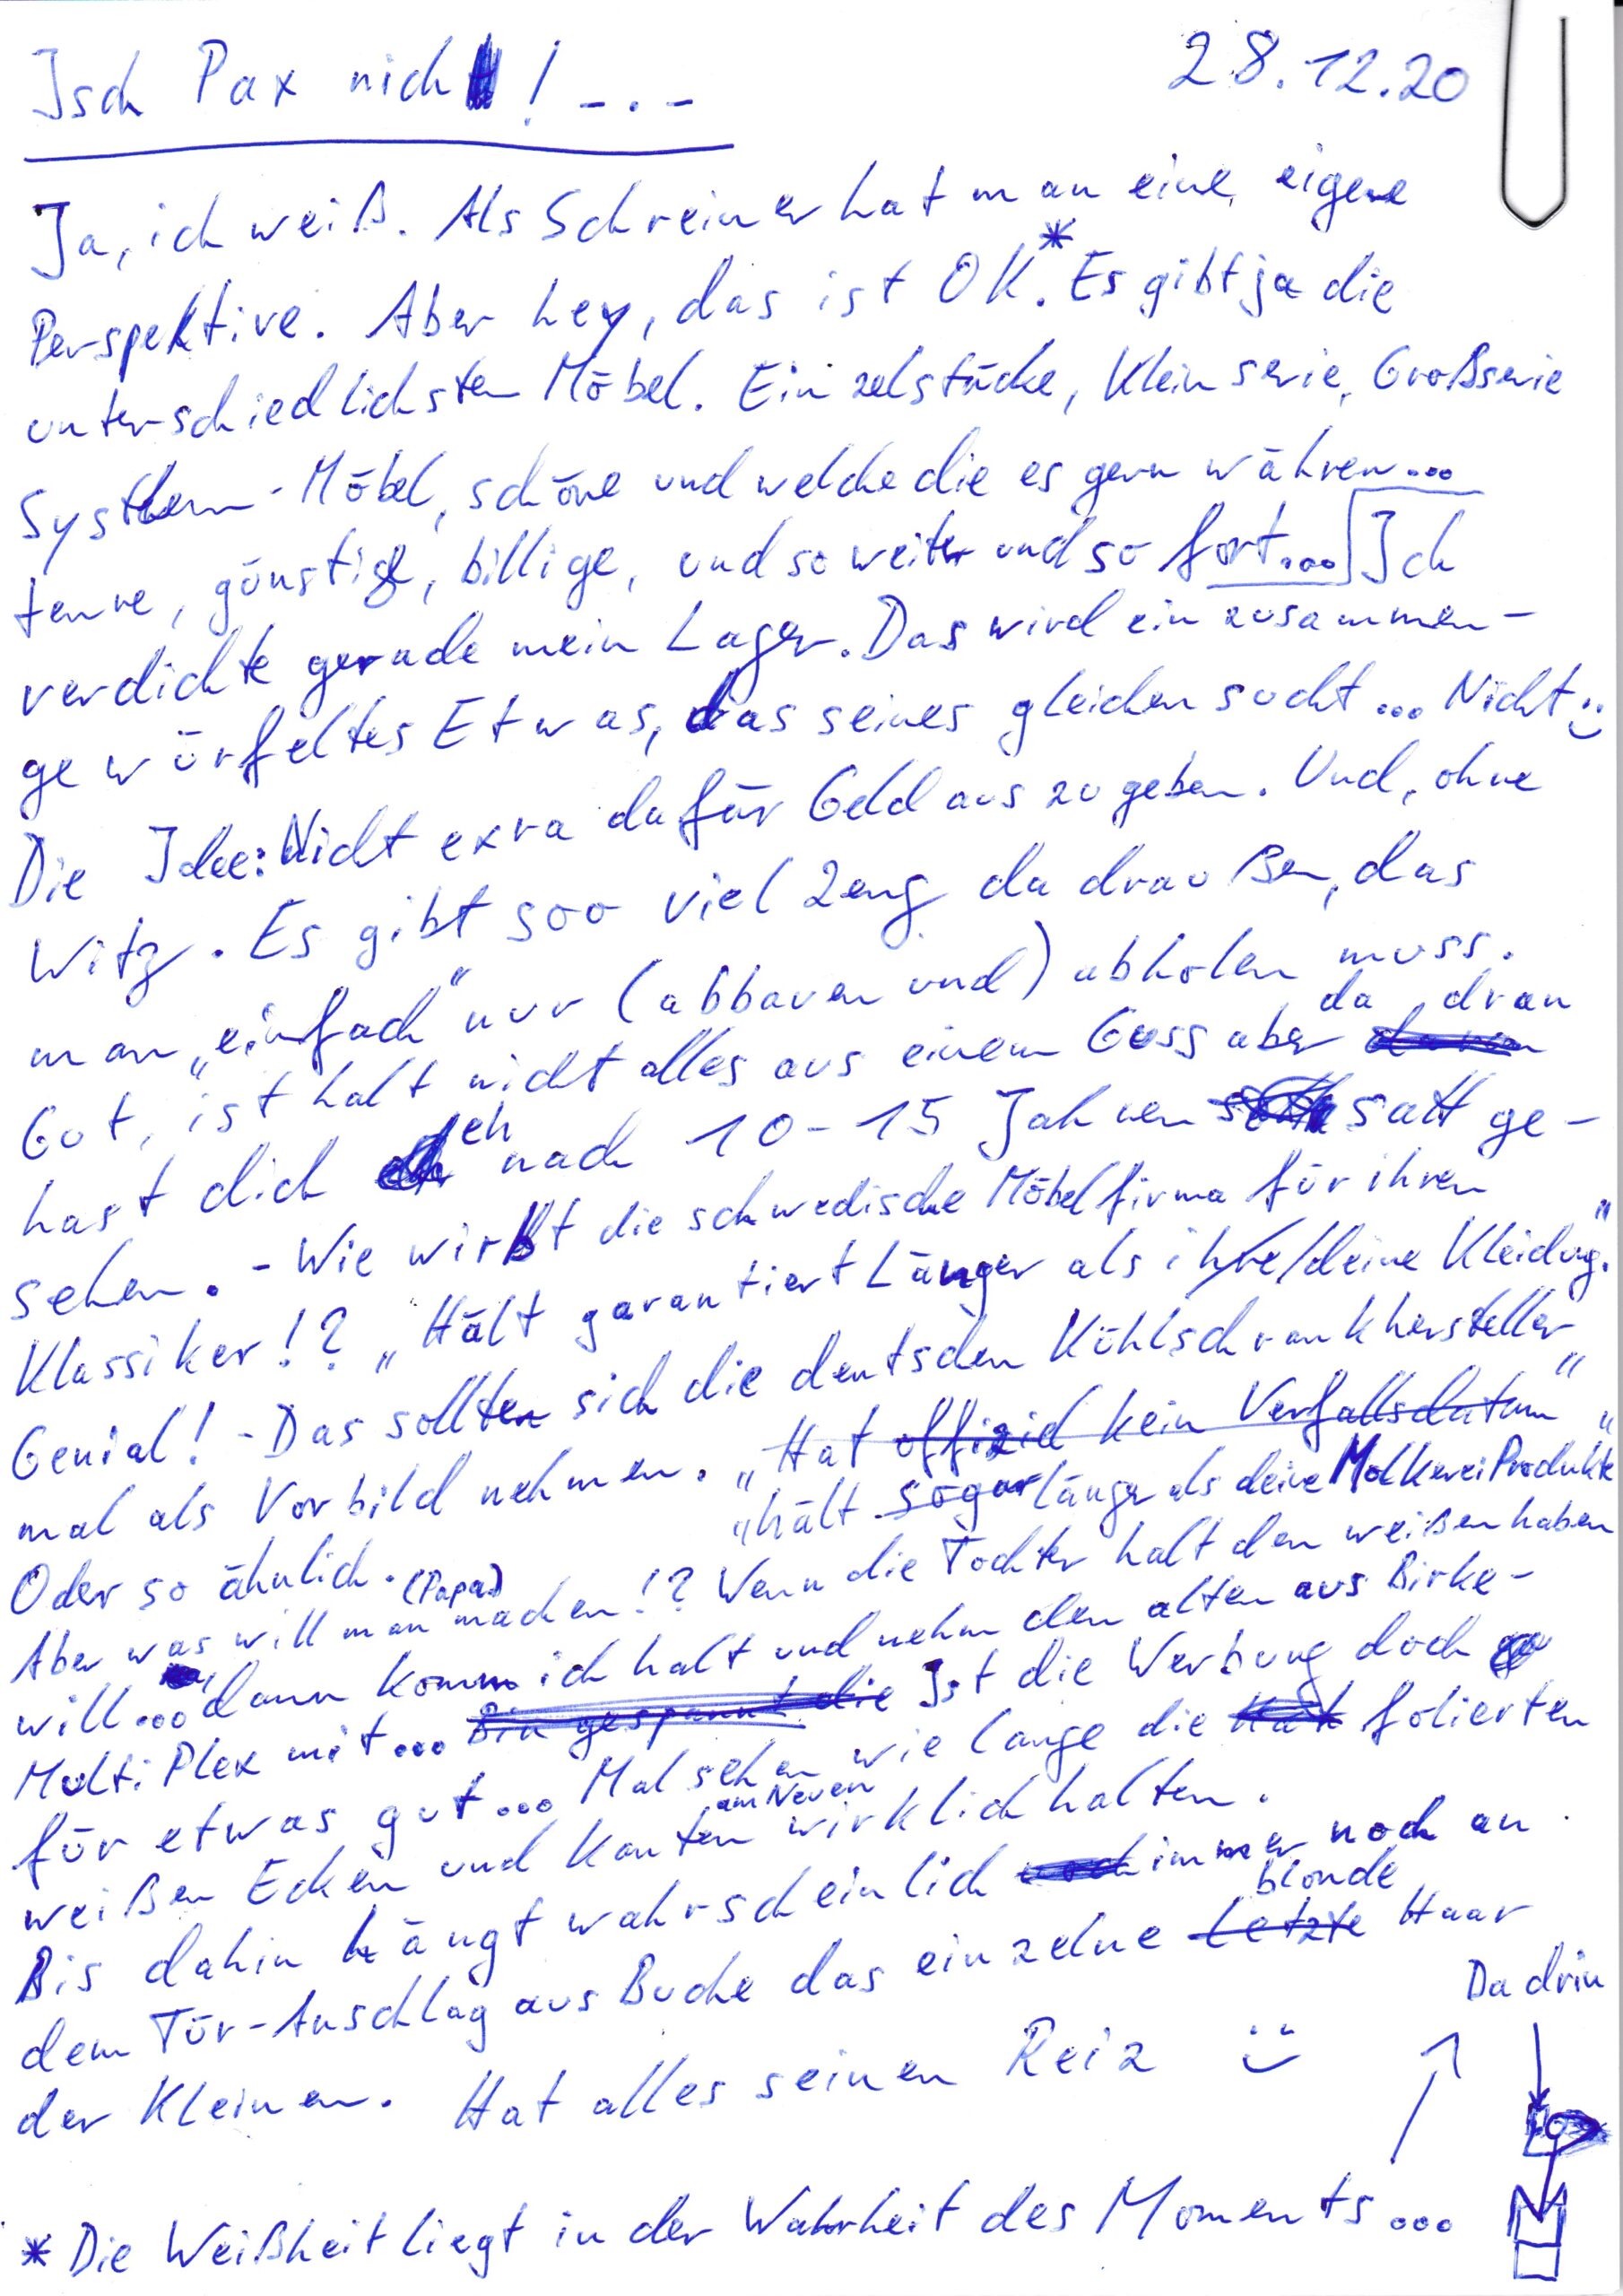 Isch Pax nich! -.-
28.12.20
Ja, ich weiß. Als Schreiner hat man eine eigene
Perspektive. Aber hey, das ist OK.* Es gibt ja die
unterschiedlichsten Möbel. Einzelstücke, Kleinserie, Großserie
System-Möbel, schöne und welche die es gern währen...
teure, günstige, billige, und so weiter und so fort... Ich
verdichte gerade mein Lager. Das wird ein zusammen-
gewürfeltes Etwas, das seines gleichen sucht... Nicht :)
Die Idee: Nicht exra dafür Geld aus zu geben. Und, ohne
Witz. Es gibt soo viel Zeug da draußen, das
man „einfach" nur (abbauen und) abholen muss.
Gut, ist halt nicht alles aus einem Guss aber da dran
hast dich eh nach 10-15 Jahren satt ge-
sehen. - Wie wirbt die schwedische Möbelfirma für ihren
Klassiker!? „Hält garantiert Länger als ihre/deine Kleidung."
Genial! - Das sollten sich die deutschen Kühlschrankhersteller
mal als Vorbild nehmen. „Hat offiziel kein Verfallsdatum"
Oder so ähnlich. „hält sogar länger als deine MolkereiProdukte"
Aber was will man (Papa) machen!? Wenn die Tochter halt den weißen haben
will... dann komm ich halt und nehm den alten aus Birke-
MultiPlex mit... Bin gespannt die Ist die Werbung doch
für etwas gut... Mal sehen wie lange die folierten
weißen Ecken und Kanten am Neuen wirklich halten.
Bis dahin hängt wahrscheinlich immer noch an
dem Tür-Anschlag aus Buche das einzelne letzte blonde Haar
der Kleinen. Hat alles seinen Reiz :)
Da drin
* Die Weißheit liegt in der Wahrheit des Moments...